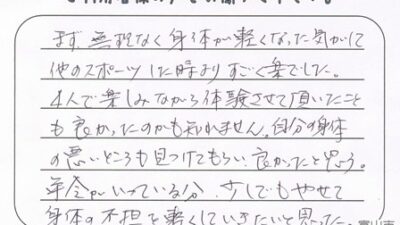 まず無理なく身体が軽くなった気がして
他のスポーツした時よりすごく楽でした。
4人で楽しみながら体験させて頂いたこと
も良かったのかも知れません。自分の身体
の悪いところも見つけてもらい、良かったと思う。
年令がいっている分、少しでもやせて
身体の不担を軽くしていきたいと思った。
富山市